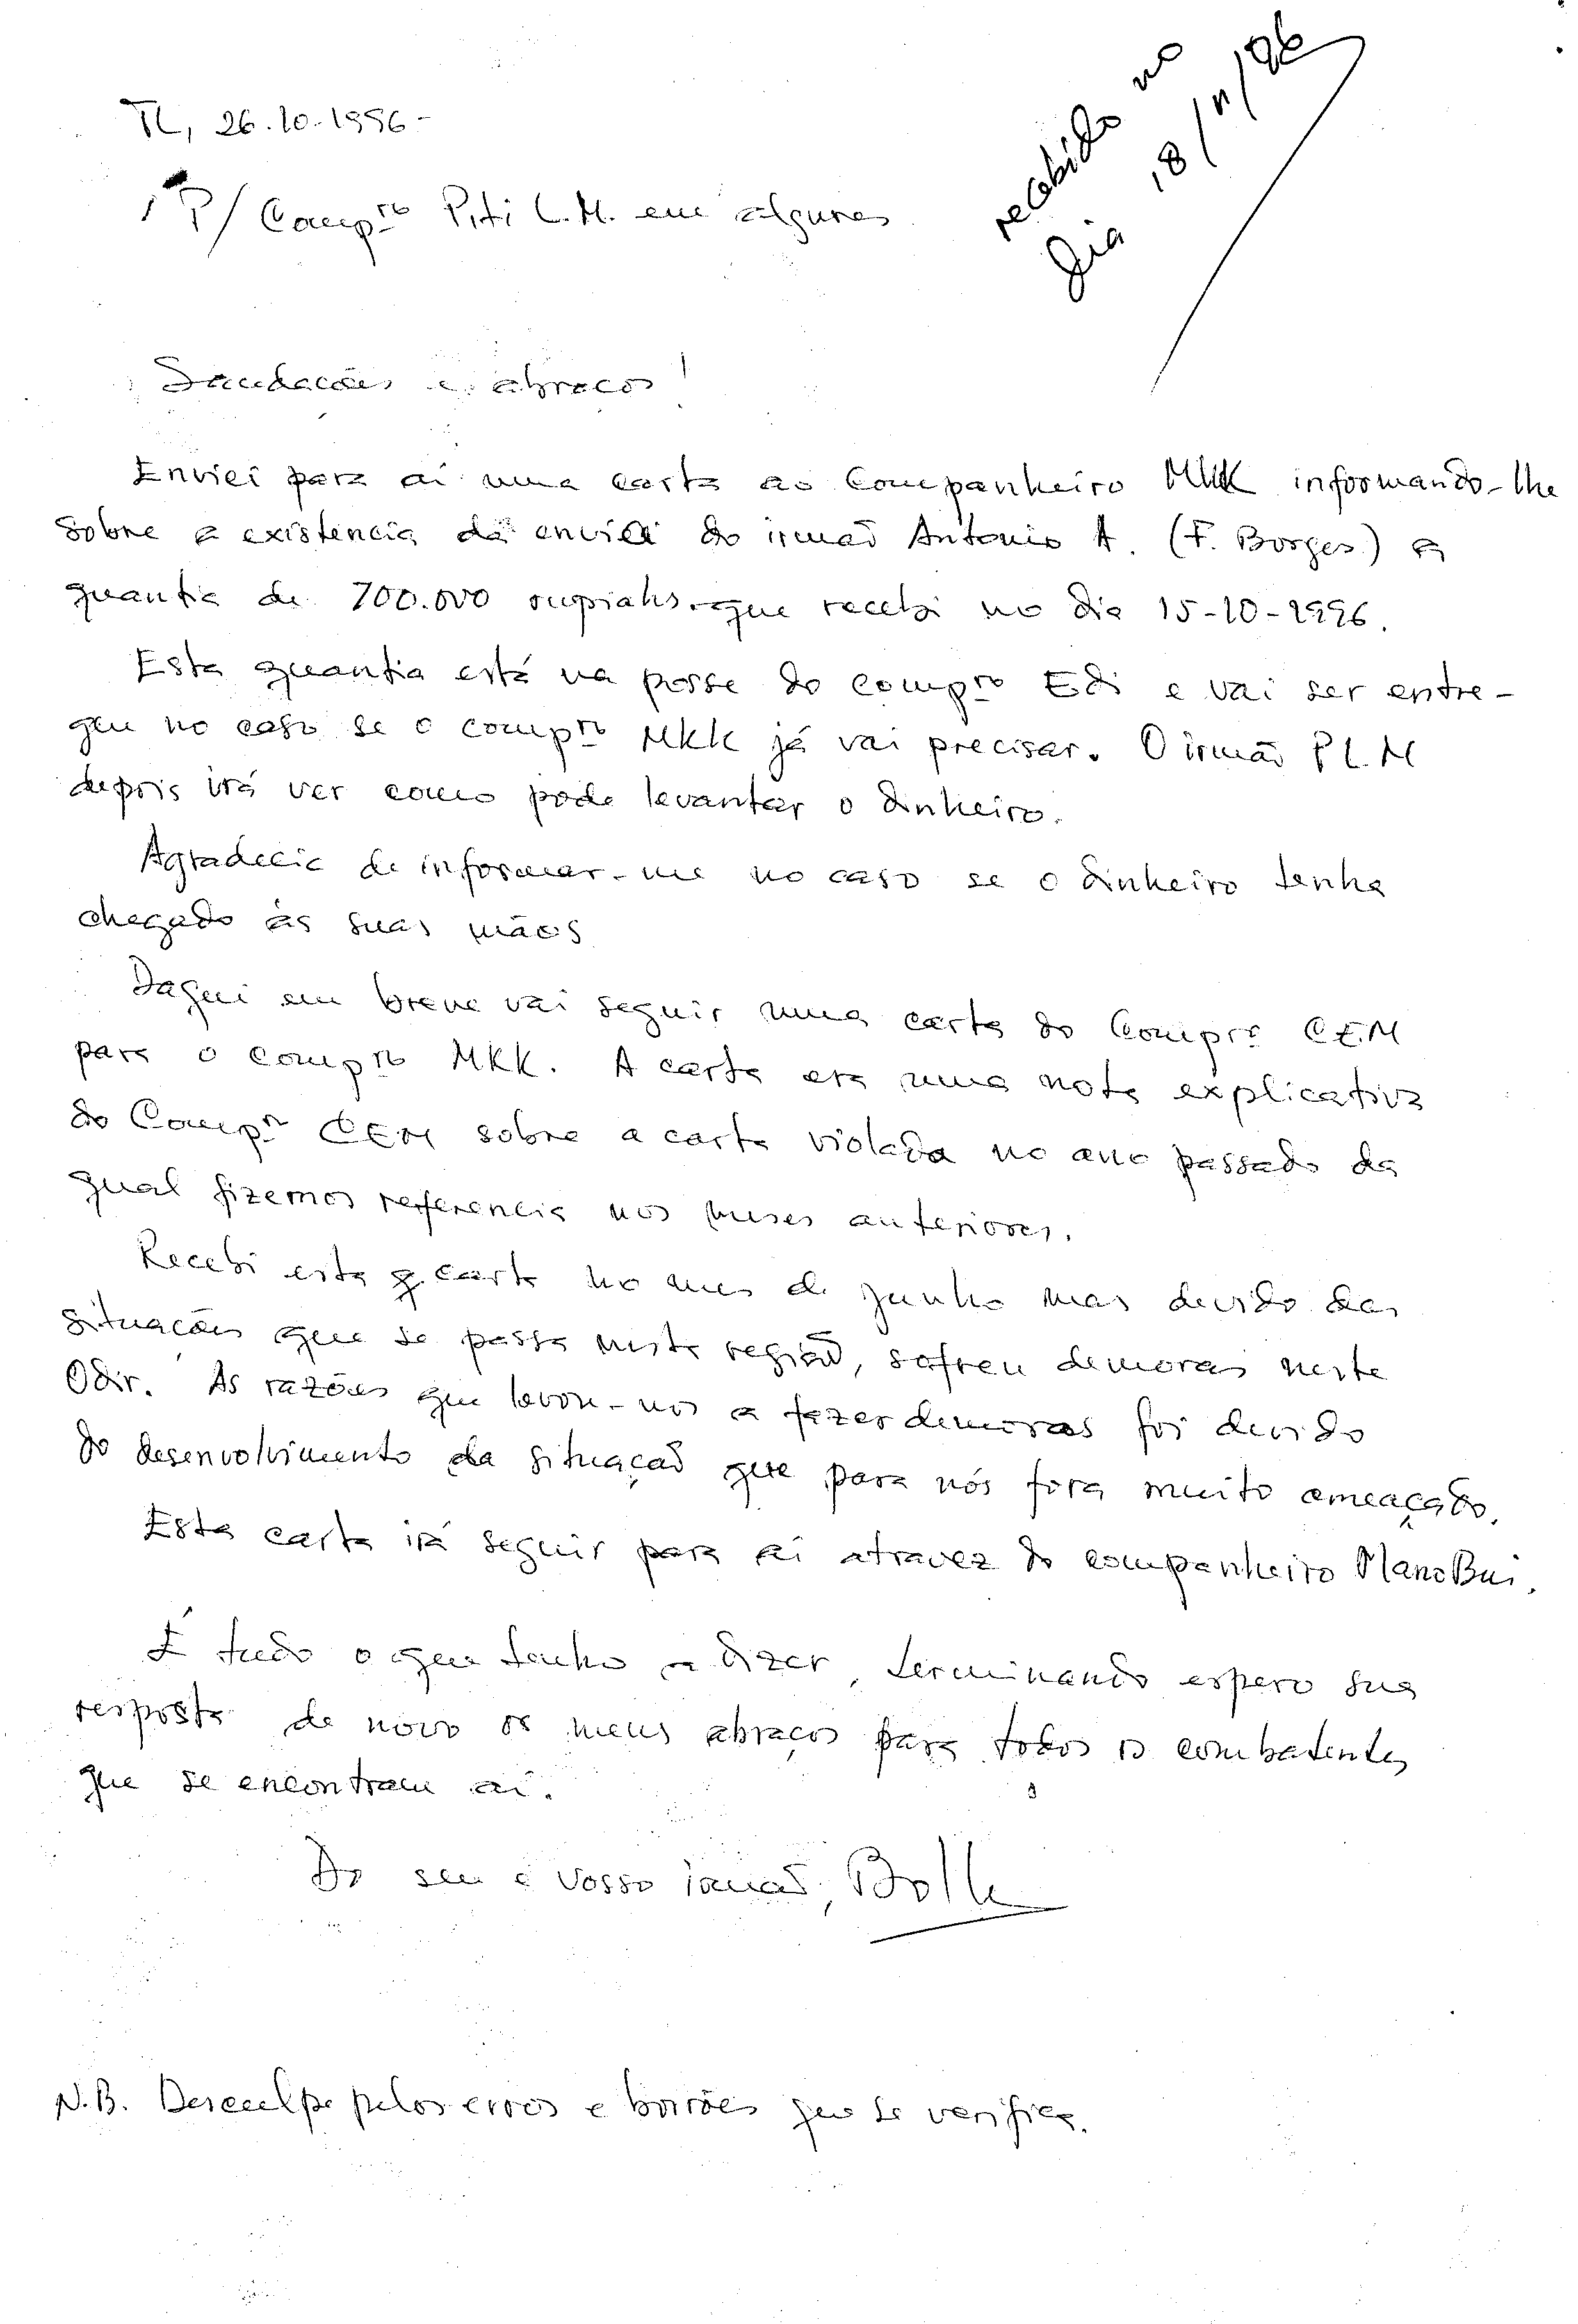 TL, 26.10.1996-
recebido no
dia 18/11/96
P/ Compro Piti L.M. em algures
Saudacões e abracos!
Enviei para aí uma carta ao Companheiro MKK informando-lhe
sobre a existencia da envili do irmaõ Antonio A. (F. Borges) a
quantia de 700.000 rupiahs que recebi no dia 15-10-1996.
Esta quantia está na posse do compro Edi e vai ser entre-
geu no caso se o compro MKK já vai precisar. O irmão P L. M
depois irá ver como pode levantar o dinheiro.
Agradecia de informar-me no caso se o dinheiro tenha
chegado às suas mãos
Daqui em breve vai seguir uma carta do Compro CEM
para o compro MKK. A carta era uma nota explicativa
do Compro CEM sobre a carta violada no ano passado da
qual fizemos referencia nos meses anteriores.
Recebi esta carta no mes de junho mas devido das
situacões que se passa nesta regiaõ, sofreu demoras neste
Odir. As razões que levou-nos a fazer demoras foi devido
do desenvolvimento da situaçaõ que para nós fora muito ameaçado.
Esta carta irá seguir para aí atravez do companheiro ManoBui.
É tudo o que tenho a dizer, terminando espero sua
resposta de novo os meus abraços para todos os combatentes
que se encontram aí.
Do seu e vosso irmaõ, Bolk
N.B. Desculpe pelos erros e borrões que se verifica.